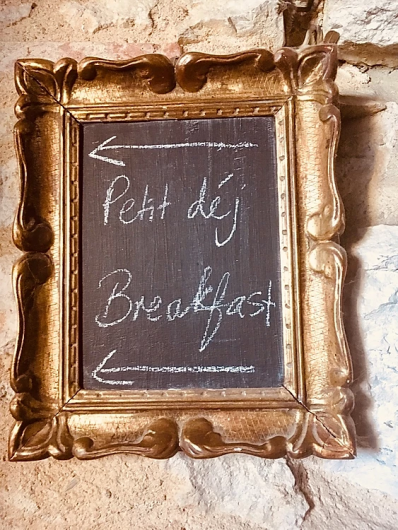 Petit déj
Breakfast